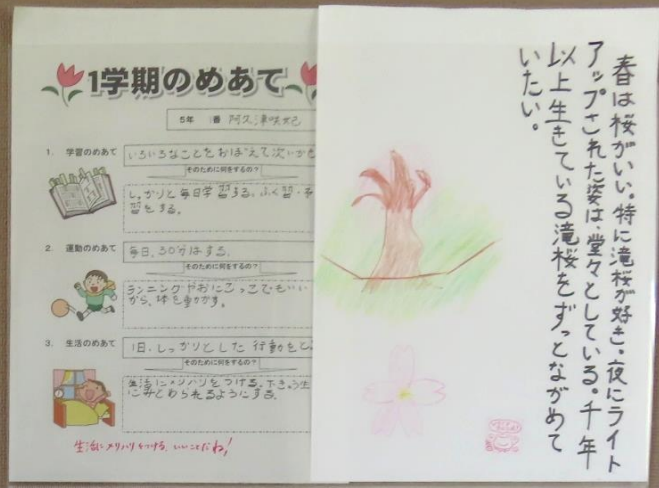 1学期のめあて
5年 番 阿久津咲妃
1. 学習のめあて
いろいろなことをおぼえて次いかせ
そのために何をするの?
しっかりと毎日学習する。ふく習・予
習をする。
2. 運動のめあて
毎日、30分はする。
そのために何をするの?
ランニングやおにごっこでもいい
から、体を動かす。
3. 生活のめあて
1日、しっかりとした行動をと
そのために何をするの?
生活にメリハリをつける。下きゅう生
にみとめられるようにする。
生活にメリハリをつける、いいことだね!
春は桜がいい。特に滝桜が好き。夜にライト
アップされた姿は、堂々としている。千年
以上生きている滝桜をずっとながめて
いたい。